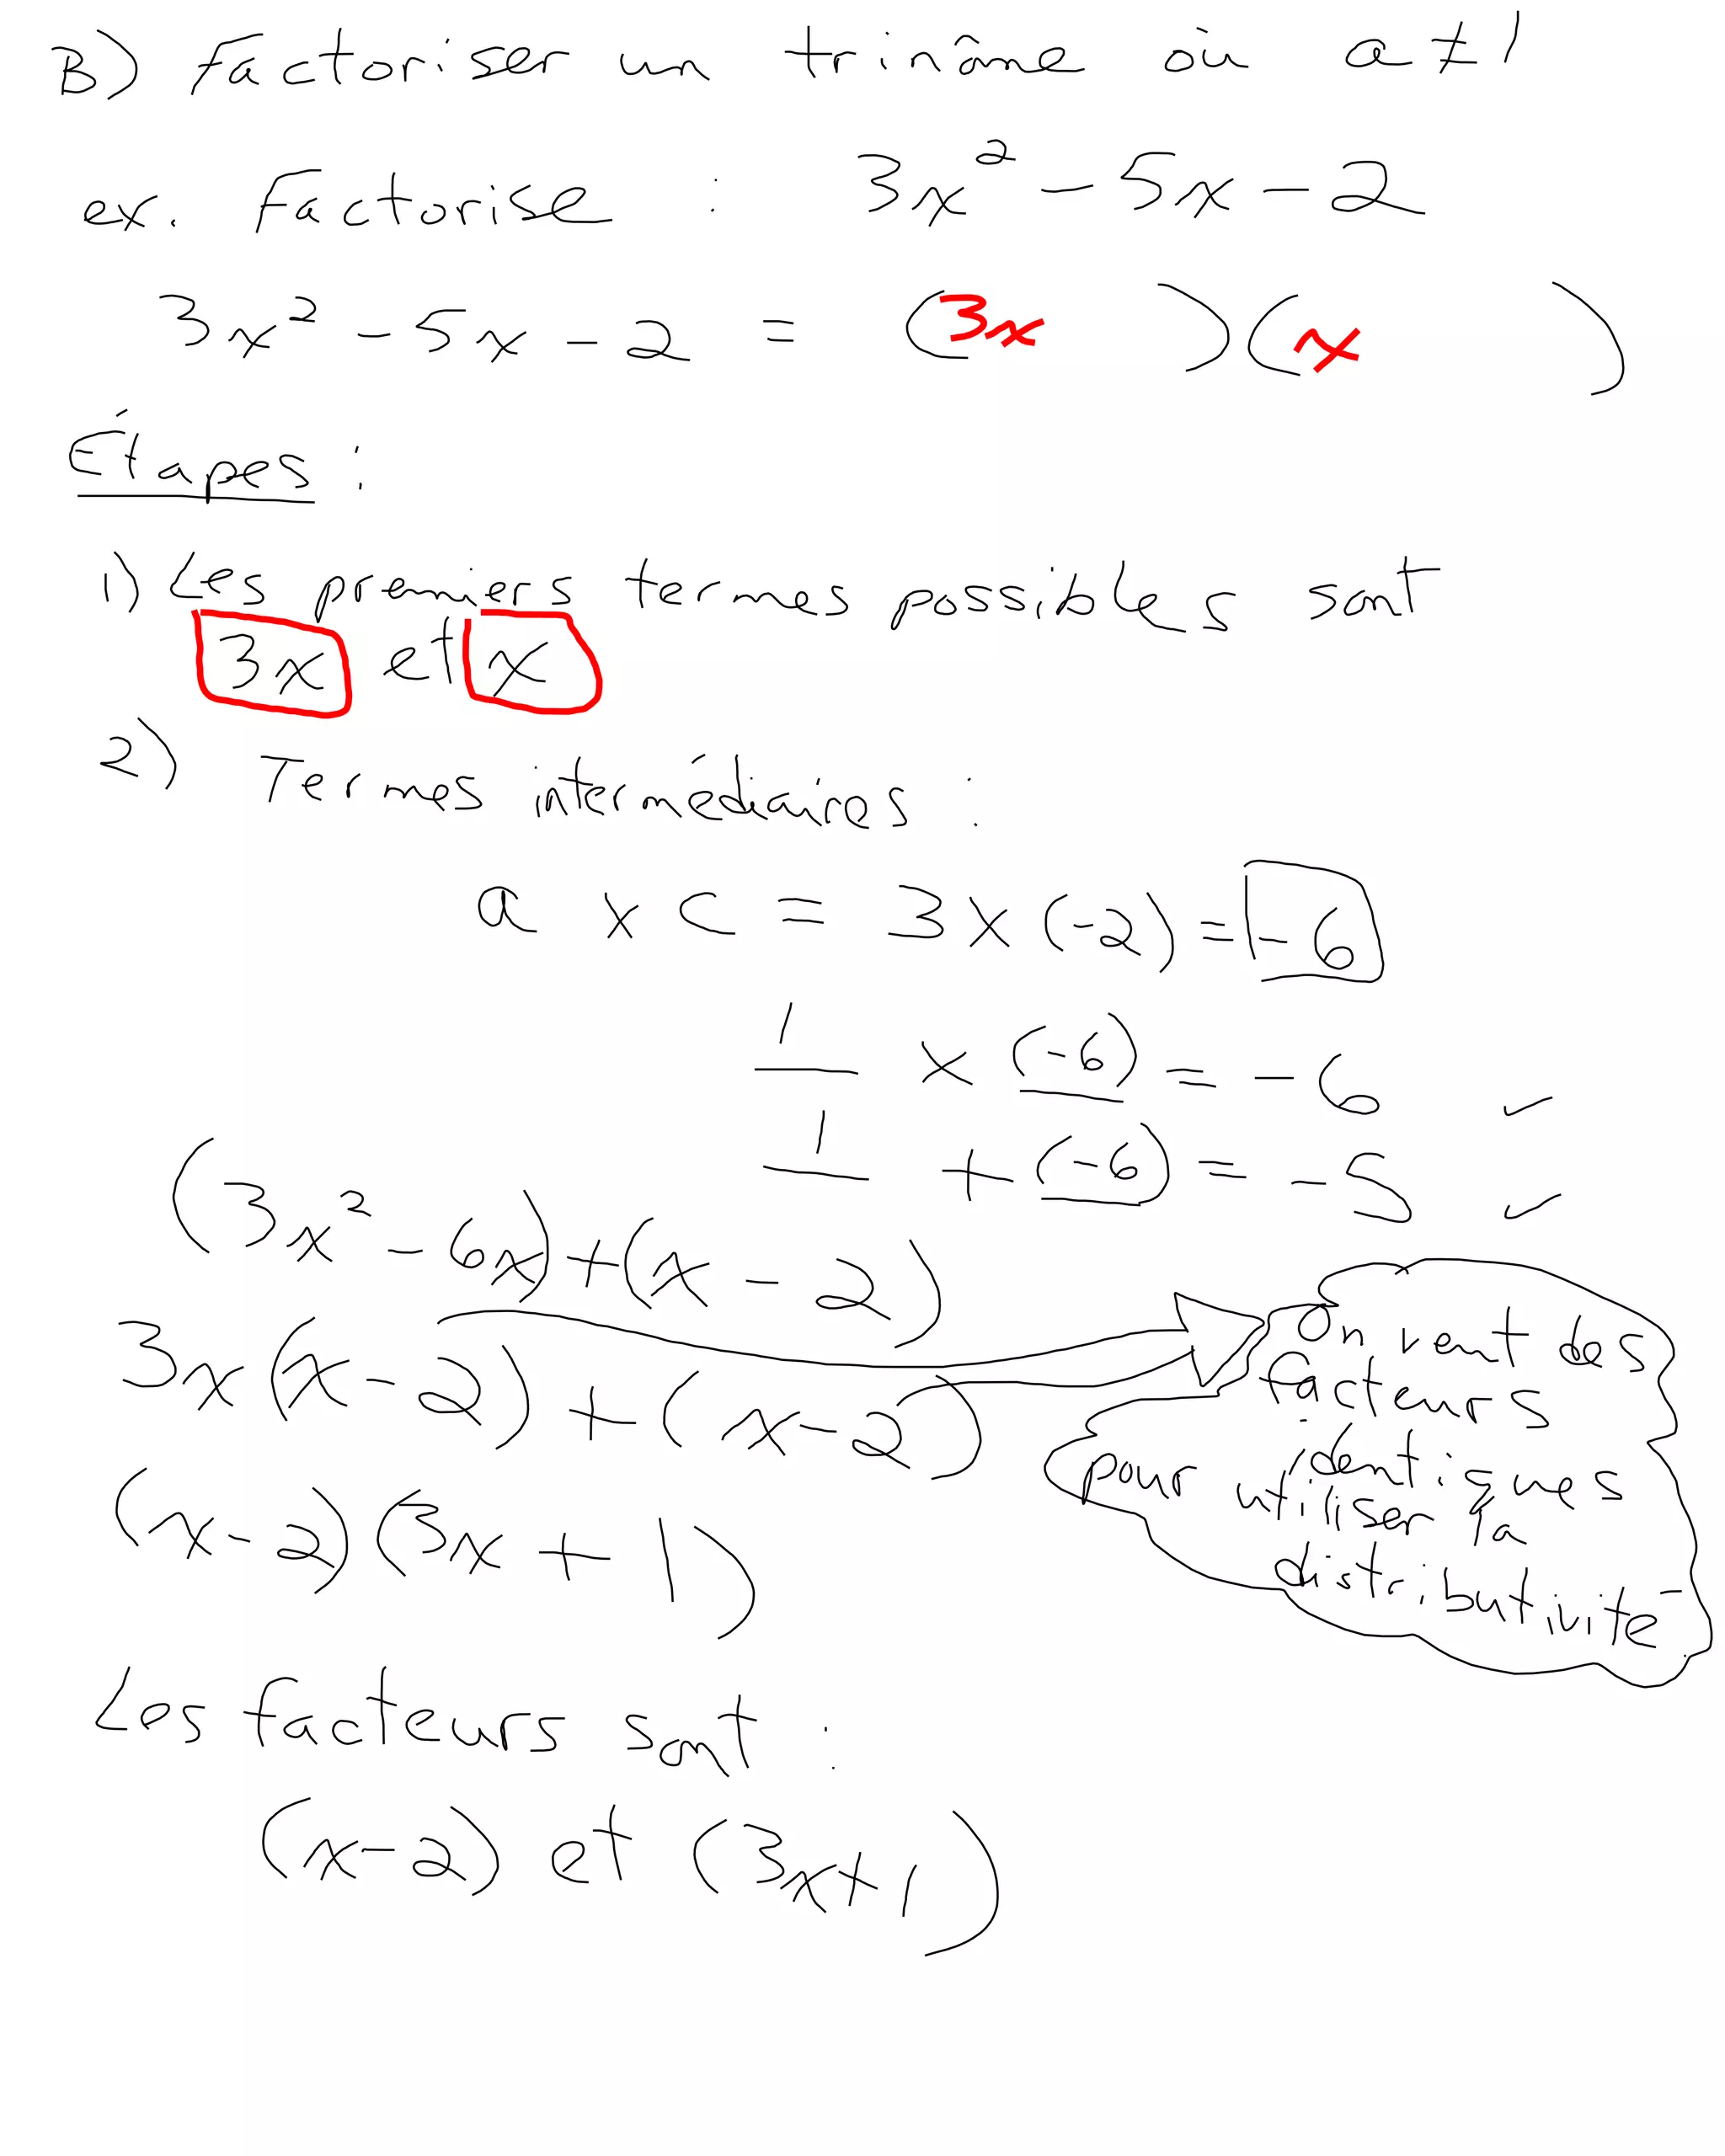 B) Factoriser un trinôme où a≠1
ex. Factorise : 3x² - 5x - 2
3x² - 5x - 2 = (3x )(x )
Étapes :
1) Les premiers termes possibles sont
3x et x
2) Termes intermédiaires :
a x c = 3 x (-2) = -6
1 x (-6) = -6 ✓
1 + (-6) = -5 ✓
(3x² - 6x) + (x - 2)
3x(x - 2) + (x - 2)
(x - 2)(3x + 1)
On veut des
facteurs
identiques
pour utiliser la
distributivité.
Les facteurs sont :
(x - 2) et (3x + 1)